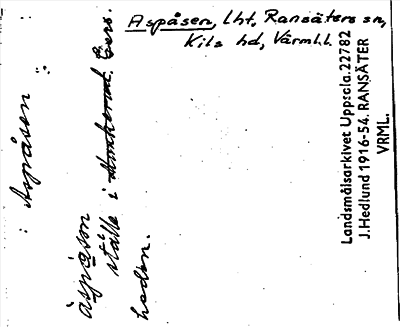 Aspåsen, lht, Ransäters sn,
Kils hd, Värml.
Aspåsen
äspåson
ställe i
heden.
Landsmålsarkivet Uppsala.22782
J. Hedlund 1916-54. RANSÄTER
VRML.